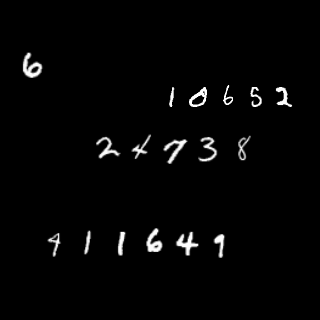 6
10652
24738
411649